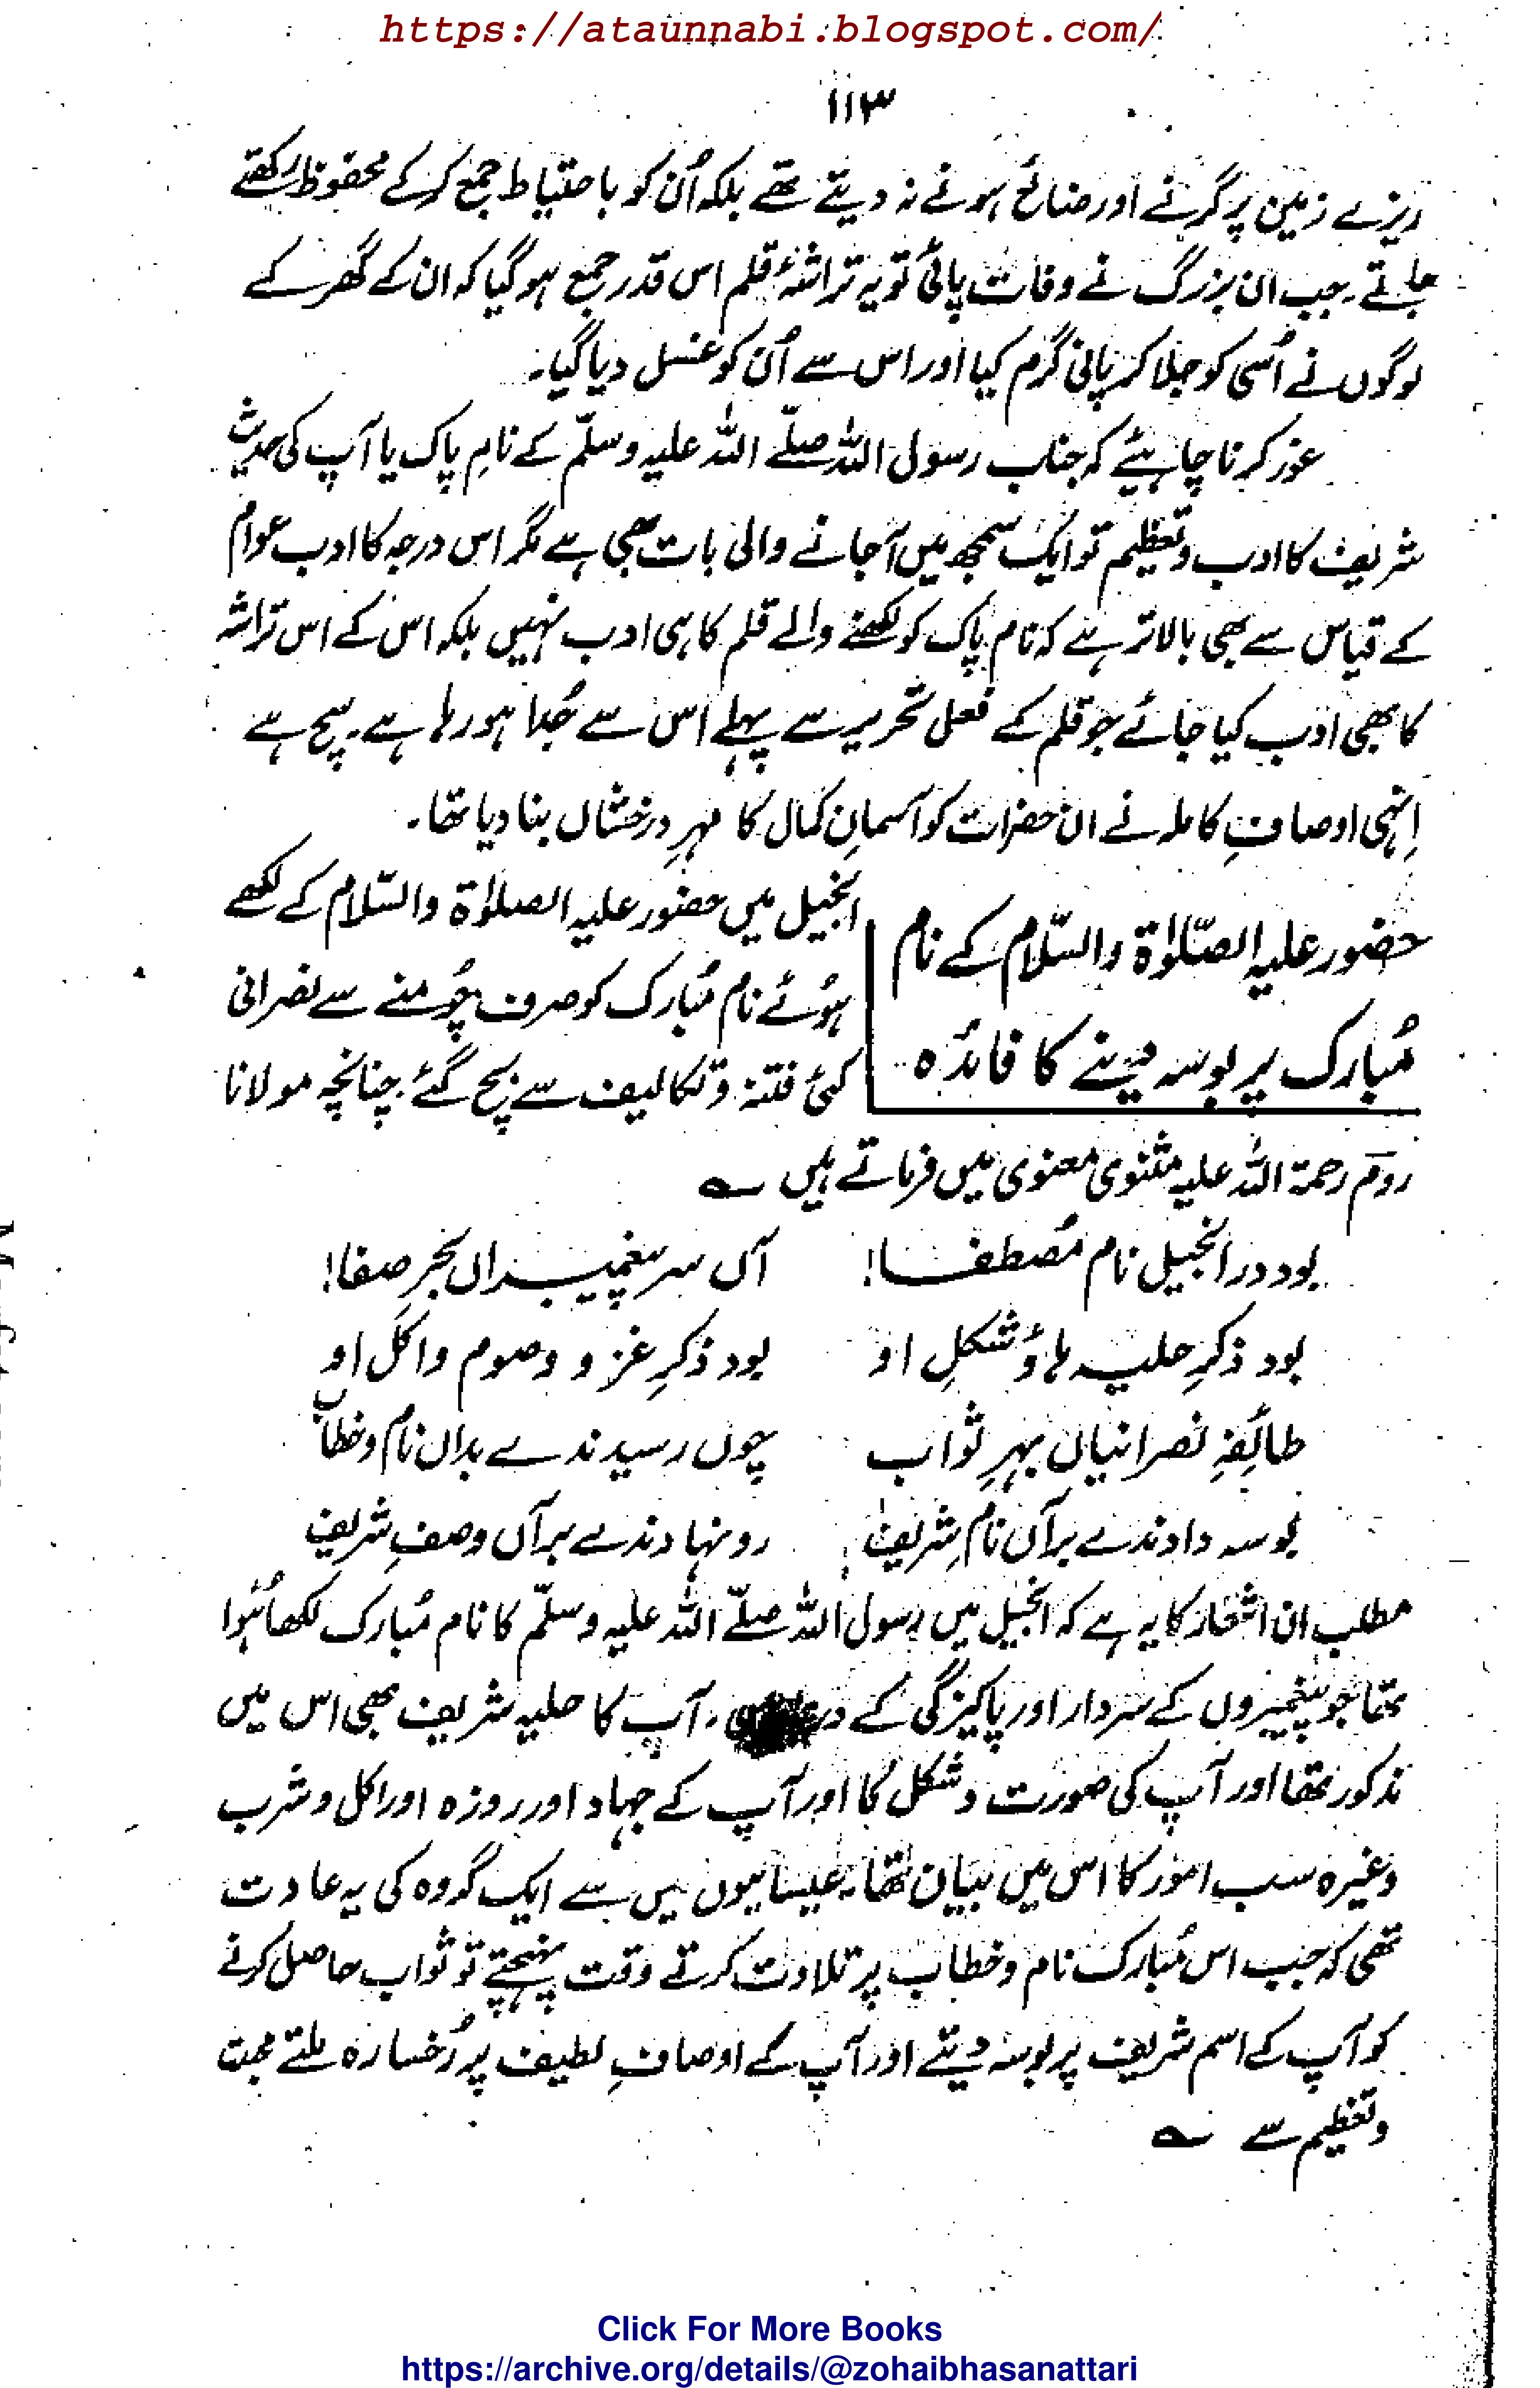 https://ataunnabi.blogspot.com/
۱۱۳
ریزے زمین پر گرنے اور ضائع ہونے نہ دیتے تھے بلکہ اُن کو باحتیاط جمع کر کے محفوظ رکھتے
جاتے۔ جب ان بزرگ نے وفات پائی تو یہ تراشۂ قلم اس قدر جمع ہو گیا کہ ان کے گھر کے
لوگوں نے اُسی کو جلا کر پانی گرم کیا اور اس سے اُن کو غسل دیا گیا۔
غور کرنا چاہیئے کہ جناب رسول اللہ صلّے اللہ علیہ وسلّم کے نامِ پاک یا آپ کی حدیث
شریف کا ادب و تعظیم تو ایک سمجھ میں آجانے والی بات بھی ہے مگر اس درجہ کا ادب عوام
کے قیاس سے بھی بالاتر ہے کہ نام پاک کو لکھنے والے قلم کا ہی ادب نہیں بلکہ اس کے اس تراشہ
کا بھی ادب کیا جائے جو قلم کے فعل تحریر سے پہلے اس سے جُدا ہو رہا ہے۔ سچ ہے
اِنہی اوصافِ کاملہ نے ان حضرات کو آسمانِ کمال کا مہرِ درخشاں بنا دیا تھا۔
حضور علیہ الصّلوٰۃ والسّلام کے نام
مُبارک پر بوسہ دینے کا فائدہ
انجیل میں حضور علیہ الصلوٰۃ والسّلام کے لکھے
ہوئے نام مُبارک کو صرف چُومنے سے نصرانی
کئی فتنہ و تکالیف سے بچ گئے۔ چنانچہ مولانا
روم رحمۃ اللہ علیہ مثنوی معنوی میں فرماتے ہیں ؎
بود در انجیل نام مُصطفےٰ! آں سر پیغمبراں بحرِ صفا!
بود ذکرِ حلیہ ہا و شکلِ او بود ذکرِ غزو و صوم و اکل او
طائفۂ نصرانیاں بہرِ ثواب چوں رسیدندے بداں نام و خطاب
بوسہ دادندے برآں نامِ شریف رو نہادندے برآں وصفِ شریف
مطلب ان اشعار کا یہ ہے کہ انجیل میں رسول اللہ صلّے اللہ علیہ وسلّم کا نام مُبارک لکھا ہُوا
تھا جو پیغمبروں کے سردار اور پاکیزگی کے ۔ آپ کا حلیہ شریف بھی اس میں
مذکور تھا اور آپ کی صورت و شکل کا اور آپ کے جہاد اور روزہ اور اکل و شرب
وغیرہ سب امور کا اس میں بیان تھا۔ عیسائیوں میں سے ایک گروہ کی یہ عادت
تھی کہ جب اس مُبارک نام و خطاب پر تلاوت کرتے وقت پہنچتے تو ثواب حاصل کرنے
کو آپ کے اسم شریف پر بوسہ دیتے اور آپ کے اوصافِ لطیف پر رُخسارہ ملتے محبت
و تعظیم سے ؎
Click For More Books
https://archive.org/details/@zohaibhasanattari